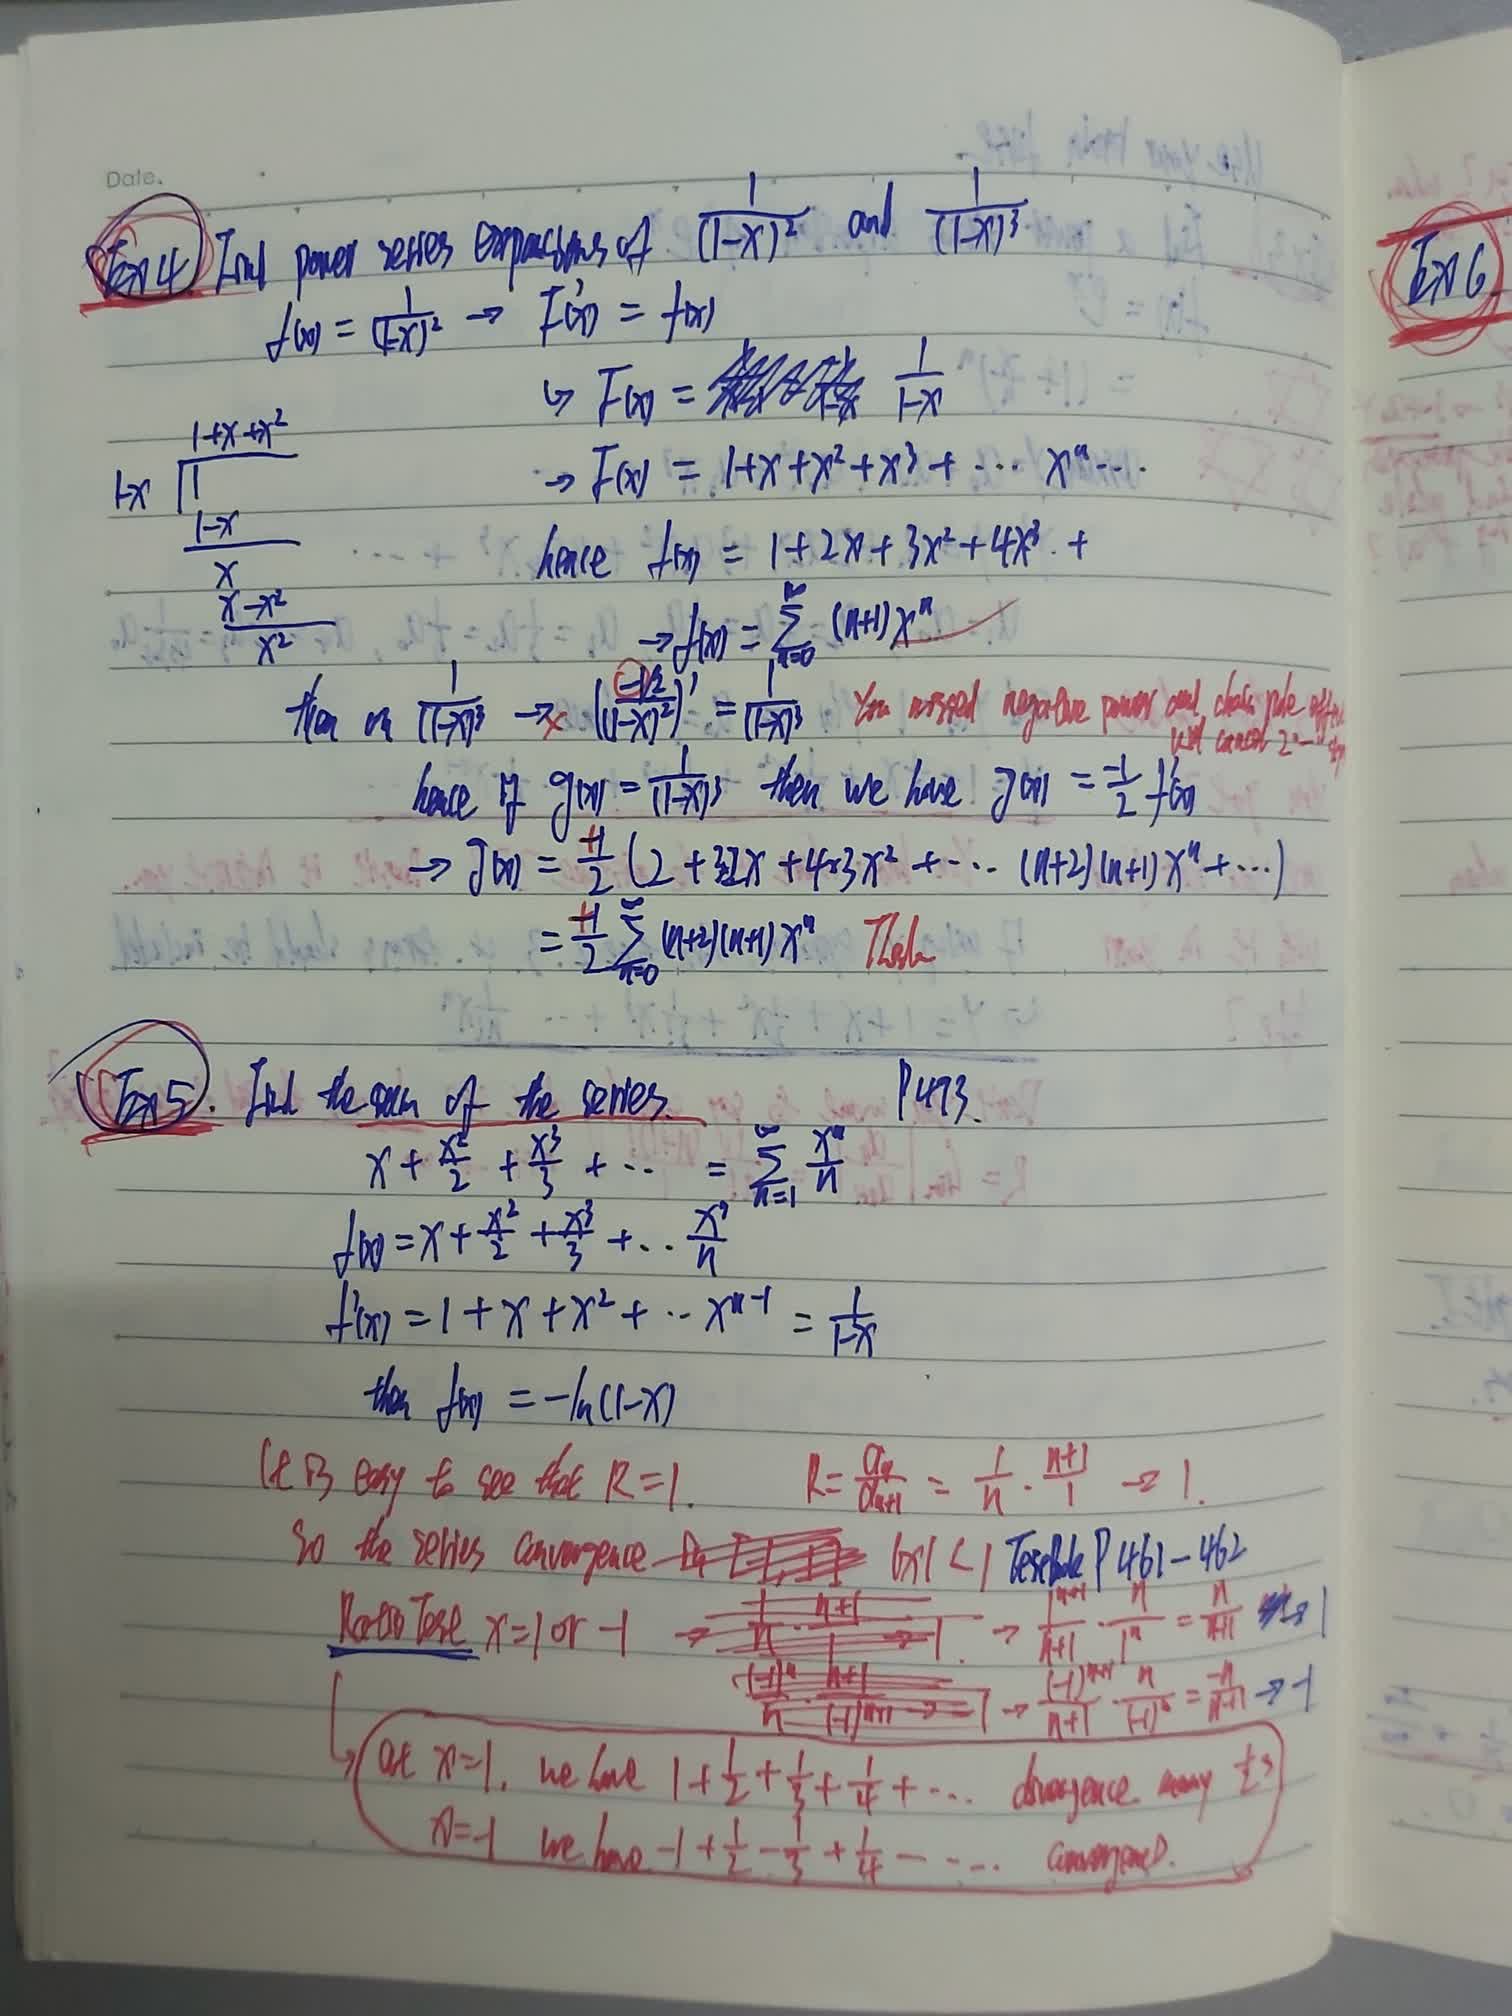 Date.
Ex4 Find power series expansions of 1/(1-x)² and 1/(1-x)³
f(x) = 1/(1-x)² → F'(x) = f(x)
↳ F(x) = 1/(1-x)
1+x+x²
1-x 1
1-x
x
x-x²
x²
→ F(x) = 1+x+x²+x³+ ⋯ xⁿ ⋯
hence f(x) = 1+2x+3x²+4x³ +
→ f(x) = ∑_{n=0}^∞ (n+1)xⁿ
then on 1/(1-x)³ → × ((-1/2)/(1-x)²)' = 1/(1-x)³ You missed negative power and chain rule
will cancel
hence if g(x) = 1/(1-x)³ then we have g(x) = -1/2 f'(x)
→ g(x) = +1/2 (2 + 3·2x + 4×3x² + ⋯ (n+2)(n+1)xⁿ + ⋯)
= +1/2 ∑_{n=0}^∞ (n+2)(n+1)xⁿ
Ex5. Find the sum of the series. P473.
x + x²/2 + x³/3 + ⋯ = ∑_{n=1}^∞ xⁿ/n
f(x) = x + x²/2 + x³/3 + ⋯ xⁿ/n
f'(x) = 1 + x + x² + ⋯ xⁿ⁻¹ = 1/(1-x)
then f(x) = -ln(1-x)
It is easy to see that R=1. R = aₙ/aₙ₊₁ = 1/n · (n+1)/1 → 1.
So the series convergence |x| < 1 P461-462
Ratio Test x=1 or -1 → → 1ⁿ⁺¹/(n+1) · n/1ⁿ = n/(n+1) → 1
→ (-1)ⁿ⁺¹/(n+1) · n/(-1)ⁿ = -n/(n+1) → -1
at x=1. we have 1 + 1/2 + 1/3 + 1/4 + ⋯ divergence many 1/2's
x=-1 we have -1 + 1/2 - 1/3 + 1/4 - ⋯ convergence.
Ex6